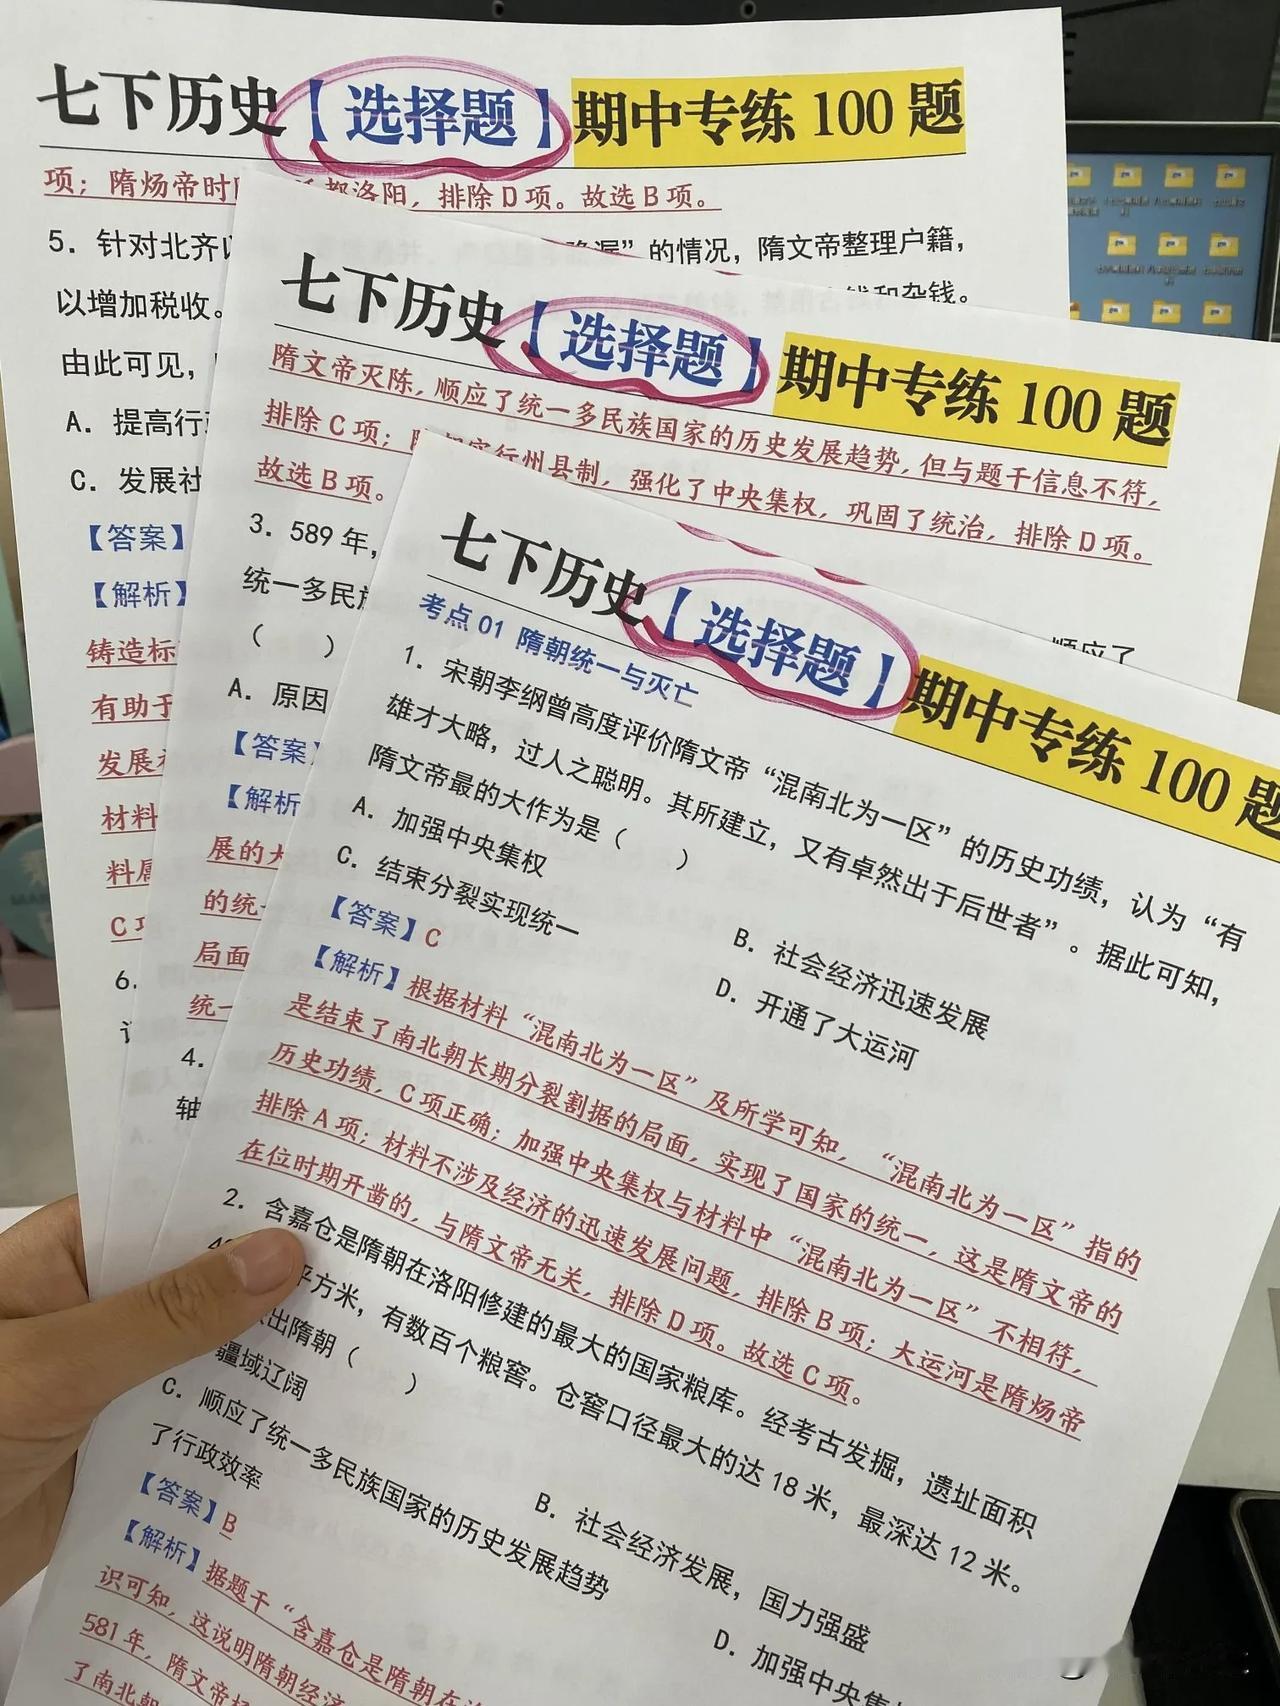 七下历史【选择题】期中专练100题
项；隋炀帝时 都洛阳，排除D项。故选B项。
5．针对北齐 ”的情况，隋文帝整理户籍，
以增加税收。 线和杂钱。
由此可见，
A．提高行
C．发展社
【答案】
【解析】
铸造标
有助于
发展
材料
料属
C项
6.
七下历史【选择题】期中专练100题
隋文帝灭陈，顺应了统一多民族国家的历史发展趋势，但与题干信息不符，
排除C项； 行州县制，强化了中央集权，巩固了统治，排除D项。
故选B项。
3．589年，
顺应了
统一多民族
（　　）
A．原因
【答案】
【解析】
展的大
的统一
局面
统一
4.
轴
七下历史【选择题】期中专练100题
考点01 隋朝统一与灭亡
1．宋朝李纲曾高度评价隋文帝“混南北为一区”的历史功绩，认为“有
雄才大略，过人之聪明。其所建立，又有卓然出于后世者”。据此可知，
隋文帝最的大作为是（　　）
A．加强中央集权
B．社会经济迅速发展
C．结束分裂实现统一
D．开通了大运河
【答案】C
【解析】根据材料“混南北为一区”及所学可知，“混南北为一区”指的
是结束了南北朝长期分裂割据的局面，实现了国家的统一，这是隋文帝的
历史功绩，C项正确；加强中央集权与材料中“混南北为一区”不相符，
排除A项；材料不涉及经济的迅速发展问题，排除B项；大运河是隋炀帝
在位时期开凿的，与隋文帝无关，排除D项。故选C项。
2．含嘉仓是隋朝在洛阳修建的最大的国家粮库。经考古发掘，遗址面积
平方米，有数百个粮窖。仓窖口径最大的达18米，最深达12米。
出隋朝（　　）
疆域辽阔
B．社会经济发展，国力强盛
C．顺应了统一多民族国家的历史发展趋势
D．加强中央集
了行政效率
【答案】B
【解析】据题干“含嘉仓是隋朝在
识可知，这说明隋朝经济
581年，隋文帝杨
了南北朝